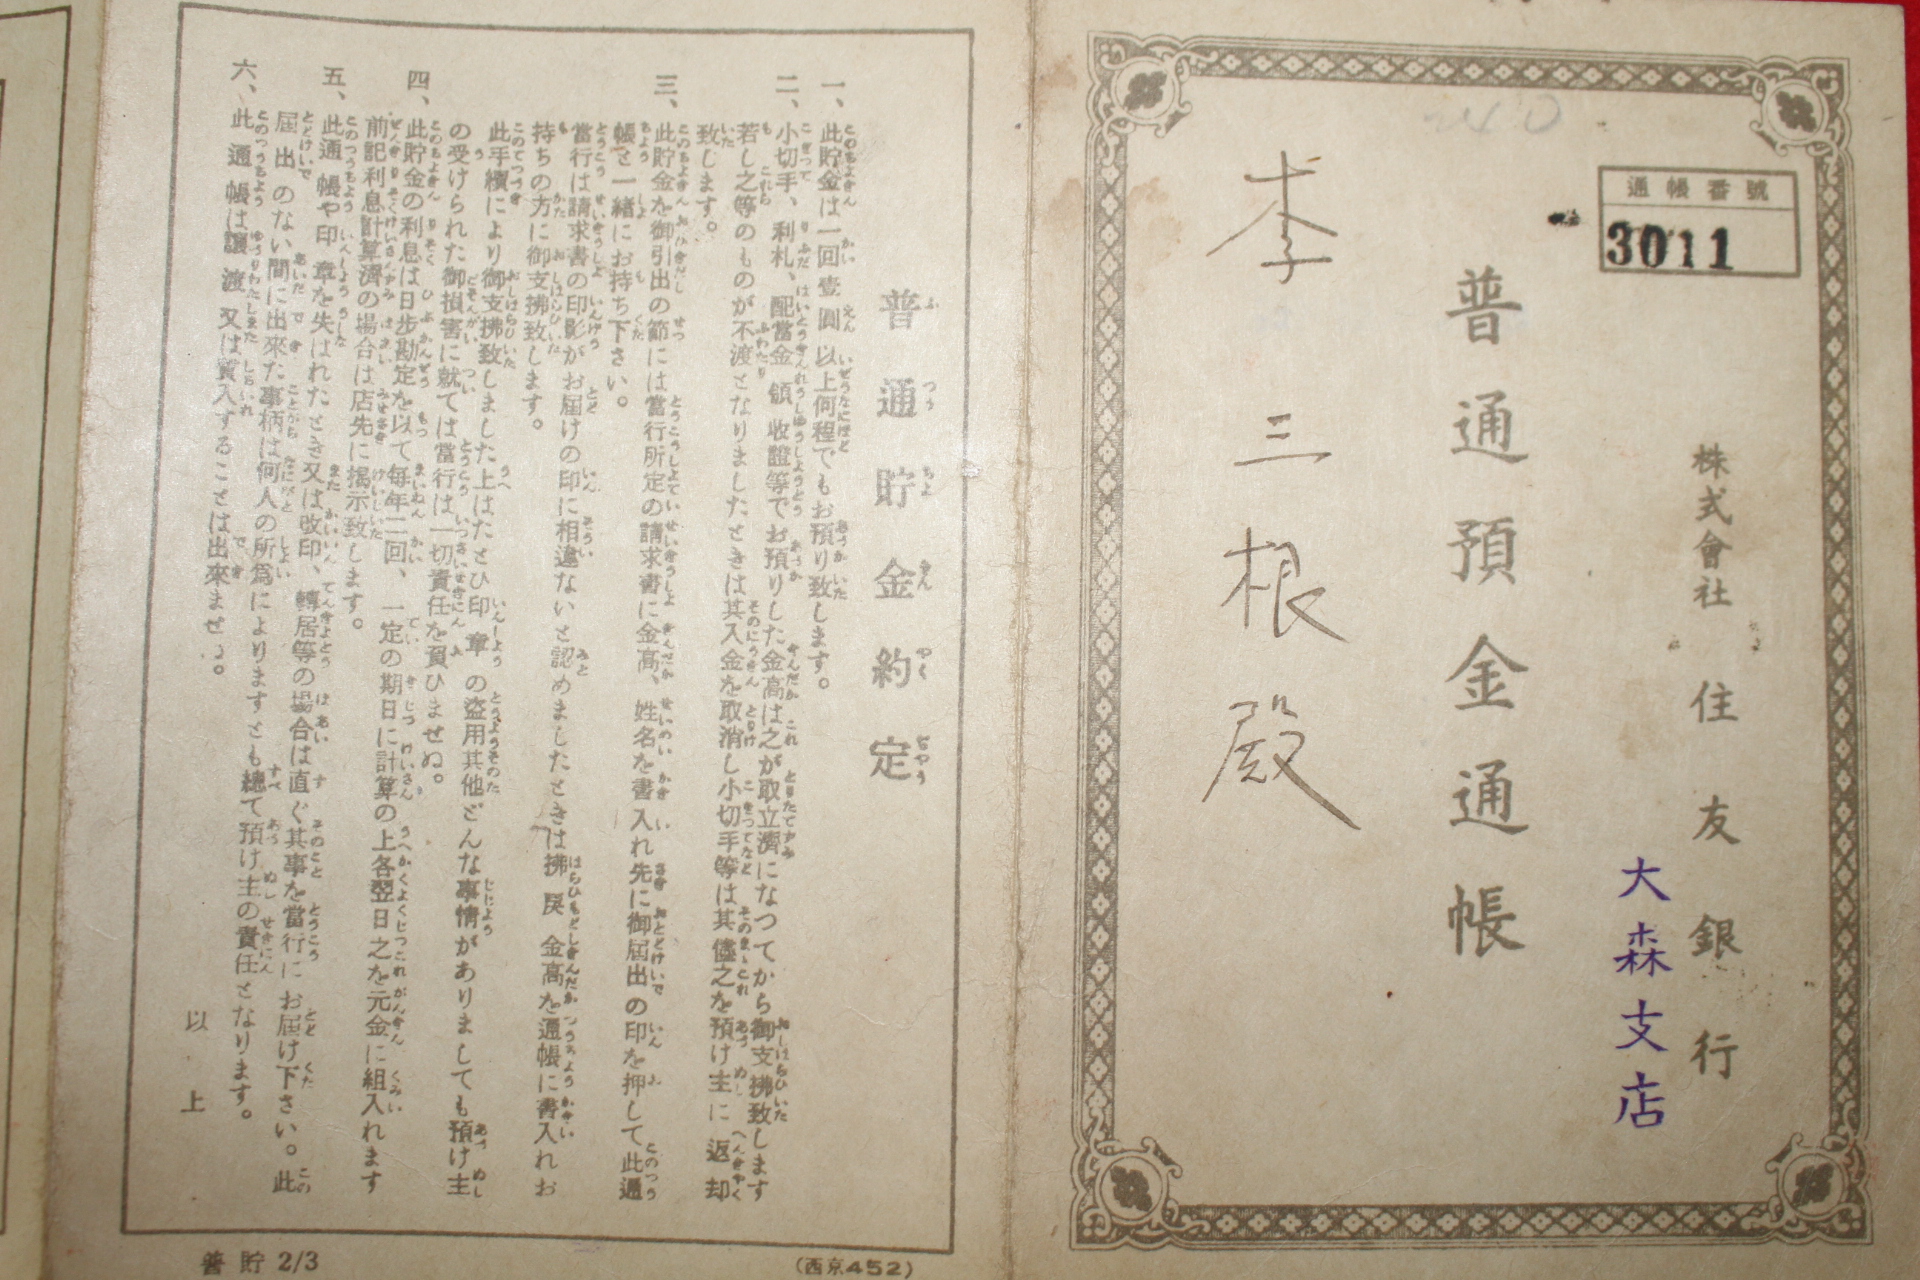 通帳番號
3011
株式會社 住友銀行
大森支店
普通預金通帳
李三根殿
普通貯金約定
一、此貯金は一回壹圓以上何程でもお預り致します。
二、小切手、利札、配當金領收證等でお預りした金高は之が取立濟になつてから御支拂致します
若し之等のものが不渡となりましたときは其入金を取消し小切手等は其儘之を預け主に返却
致します。
三、此貯金を御引出の節には當行所定の請求書に金高、姓名を書入れ先に御屆出の印を押して此通
帳と一緒にお持ち下さい。
當行は請求書の印影がお屆けの印に相違ないと認めましたときは拂戾金高を通帳に書入れお
持ちの方に御支拂致します。
此手續により御支拂致しました上はたとひ印章の盜用其他どんな事情がありましても預け主
の受けられた御損害に就ては當行は一切責任を負ひませぬ。
四、此貯金の利息は日步勘定を以て每年二回、一定の期日に計算の上各翌日之を元金に組入れます
前記利息計算濟の場合は店先に揭示致します。
五、此通帳や印章を失はれたとき又は改印、轉居等の場合は直ぐ其事を當行にお屆け下さい。此
屆出のない間に出來た事柄は何人の所爲によりますとも總て預け主の責任となります。
六、此通帳は讓渡又は質入することは出來ませぬ。
以上
普貯 2/3
(西京452)